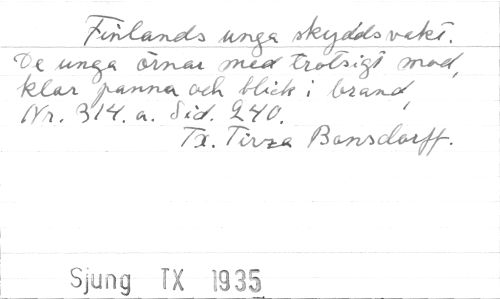 Finlands unga skyddsvakt.
De unga örnar med trotsigt mod,
klar panna och blick i brand,
Nr. 314. a. Sid. 240.
Tx. Tirza Bonsdorff.
Sjung TX 1935